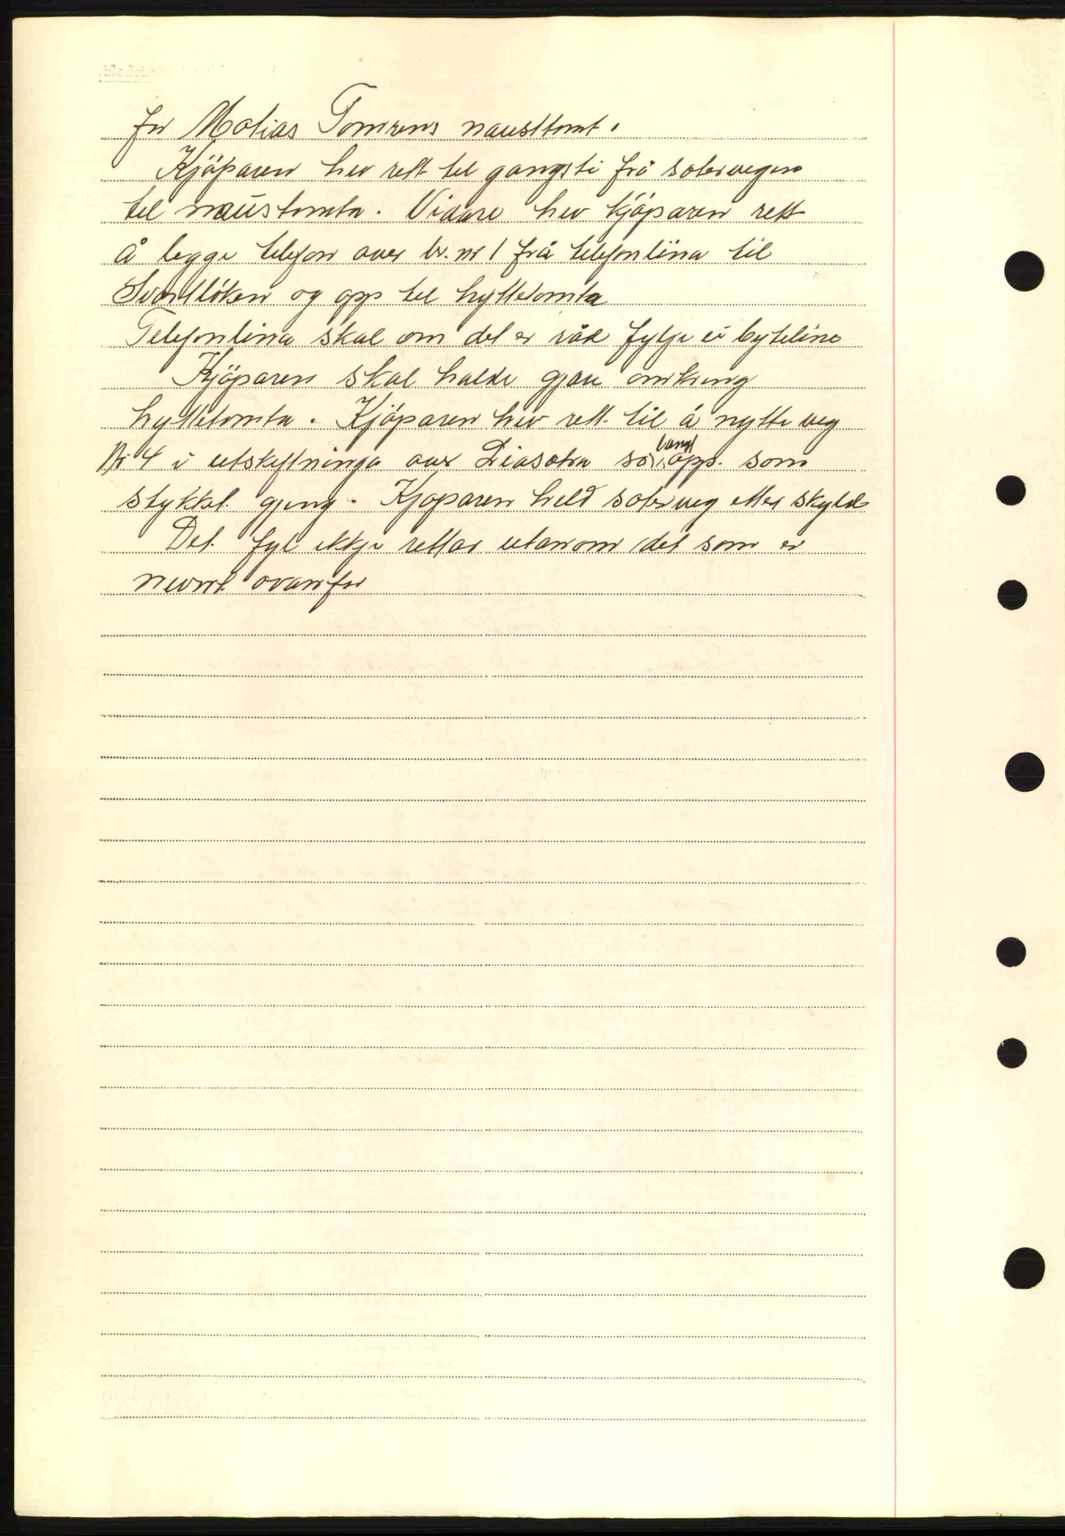 for Matias Tomrens nausttomt.
Kjöparen hev rett til gangsti frå sætervegen
til naustomta. Vidare hev kjöparen rett
å legge telefon over br. nr 1 frå telefonlina til
og opp til hyttetomta
Telefonlina skal om det er råd fylgje ei byteline
Kjöparen skal halde gjære omkring
hyttetomta. Kjöparen hev rett til å nytte veg
Nr 4 i utskiftninga over so langt opp som
stykket gjeng. Kjöparen held veg etter skyld
Det fyl ikkje rettar utanom det som er
nevnt ovanfor